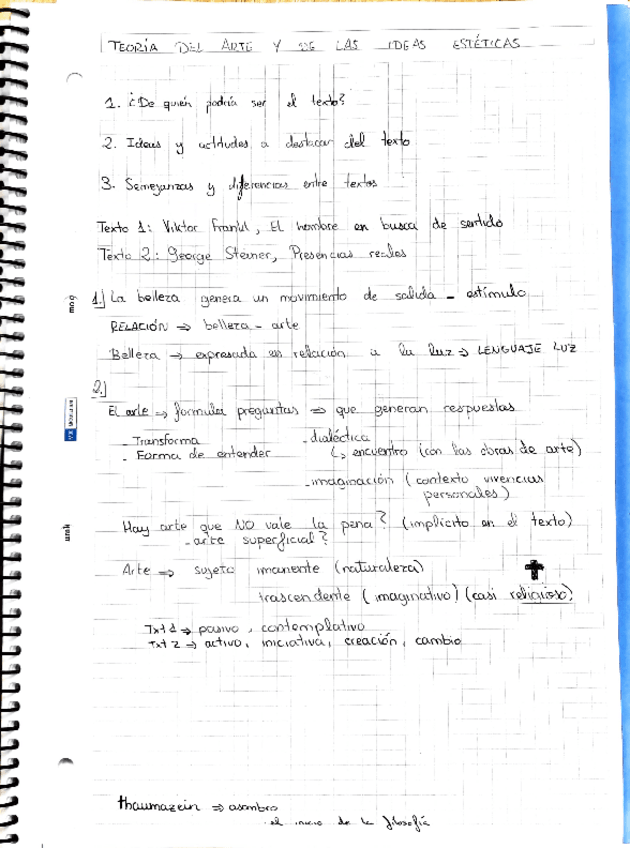 TEORÍA DEL ARTE Y DE LAS IDEAS ESTÉTICAS
1. ¿De quién podría ser el texto?
2. Ideas y actitudes a destacar del texto
3. Semejanzas y diferencias entre textos
Texto 1: Viktor Frankl, El hombre en busca de sentido
Texto 2: George Steiner, Presencias reales
1.] La belleza genera un movimiento de salida - estímulo
RELACIÓN ⇒ belleza - arte
Belleza → expresada en relación a la luz ⇒ LENGUAJE LUZ
2.]
El arte ⇒ formula preguntas ⇒ que generan respuestas
- Transforma - dialéctica
- Forma de entender ↳ encuentro (con las obras de arte)
- imaginación (contexto vivencias
personales)
Hay arte que NO vale la pena? (implícito en el texto)
- arte superficial?
Arte ⇒ sujeto imanente (naturaleza)
trascendente (imaginativo) (casi religioso)
Txt 1 ⇒ pasivo, contemplativo
Txt 2 ⇒ activo, iniciativa, creación, cambio
thaumazein ⇒ asombro
el inicio de la filosofía